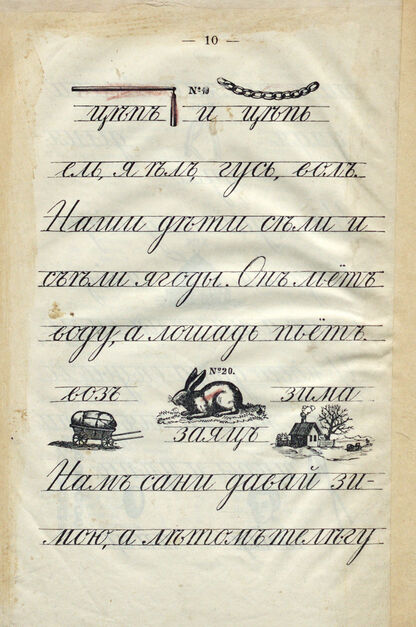 — 10 —
№ 19
цѣпъ и цѣпь
ель, я ѣлъ, гусь, волъ.
Наши дѣти сѣли и
съѣли ягоды. Онъ льётъ
воду, а лошадь пьётъ.
№ 20.
возъ зима
заяцъ
Намъ сани давай зи-
мою, а лѣтомъ телѣгу